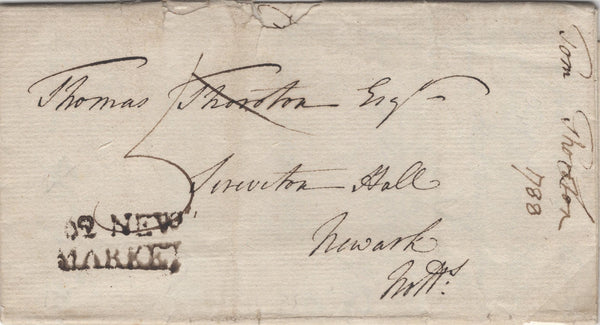 Thomas Thoroton Esqr
5
Screveton Hall
Newark
Notts.
62 NEW
MARKET
Tom Thoroton
1788